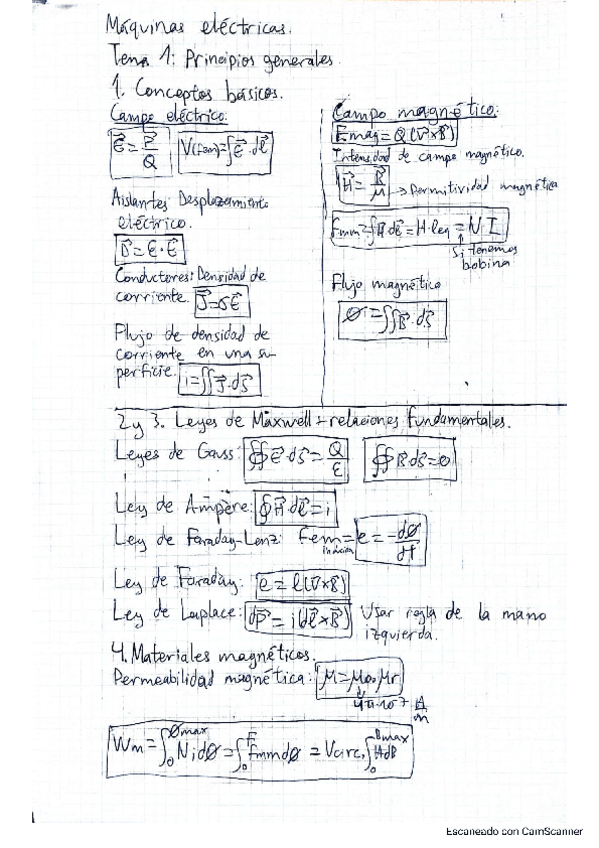 Máquinas eléctricas.
Tema 1: Principios generales.
1. Conceptos básicos.
Campo eléctrico:
ε⃗ = F⃗/Q V(fem)=∫ε⃗·dl⃗
Aislantes: Desplazamiento
eléctrico.
D⃗ = ε·ε⃗
Conductores: Densidad de
corriente. J⃗=σε⃗
Flujo de densidad de
corriente en una su-
perficie. i=∬J⃗·ds⃗
Campo magnético:
Fmag=Q(v⃗×B⃗)
Intensidad de campo magnético.
H⃗ = B⃗/μ → Permitividad magnética
Fmm=∫H⃗·dl⃗=H·len=NI
Si tenemos
bobina
Flujo magnético
Ø=∬B⃗·ds⃗
2 y 3. Leyes de Maxwell + relaciones fundamentales.
Leyes de Gauss: ∯ε⃗·ds⃗=Q/ε ∯B⃗·ds⃗=0
Ley de Ampère: ∮H⃗·dl⃗=i
Ley de Faraday-Lenz: Fem=e=-dØ/dt
Ley de Faraday: e=l(v⃗×B⃗)
Ley de Laplace: dF⃗=i(dl⃗×B⃗) Usar regla de la mano
izquierda.
4. Materiales magnéticos.
Permeabilidad magnética: μ=μ₀·μr
4π·10⁻⁷ H/m
Wm=∫₀^Ømax NidØ=∫₀^F FmmdØ=Vcirc.∫₀^Bmax HdB
Escaneado con CamScanner